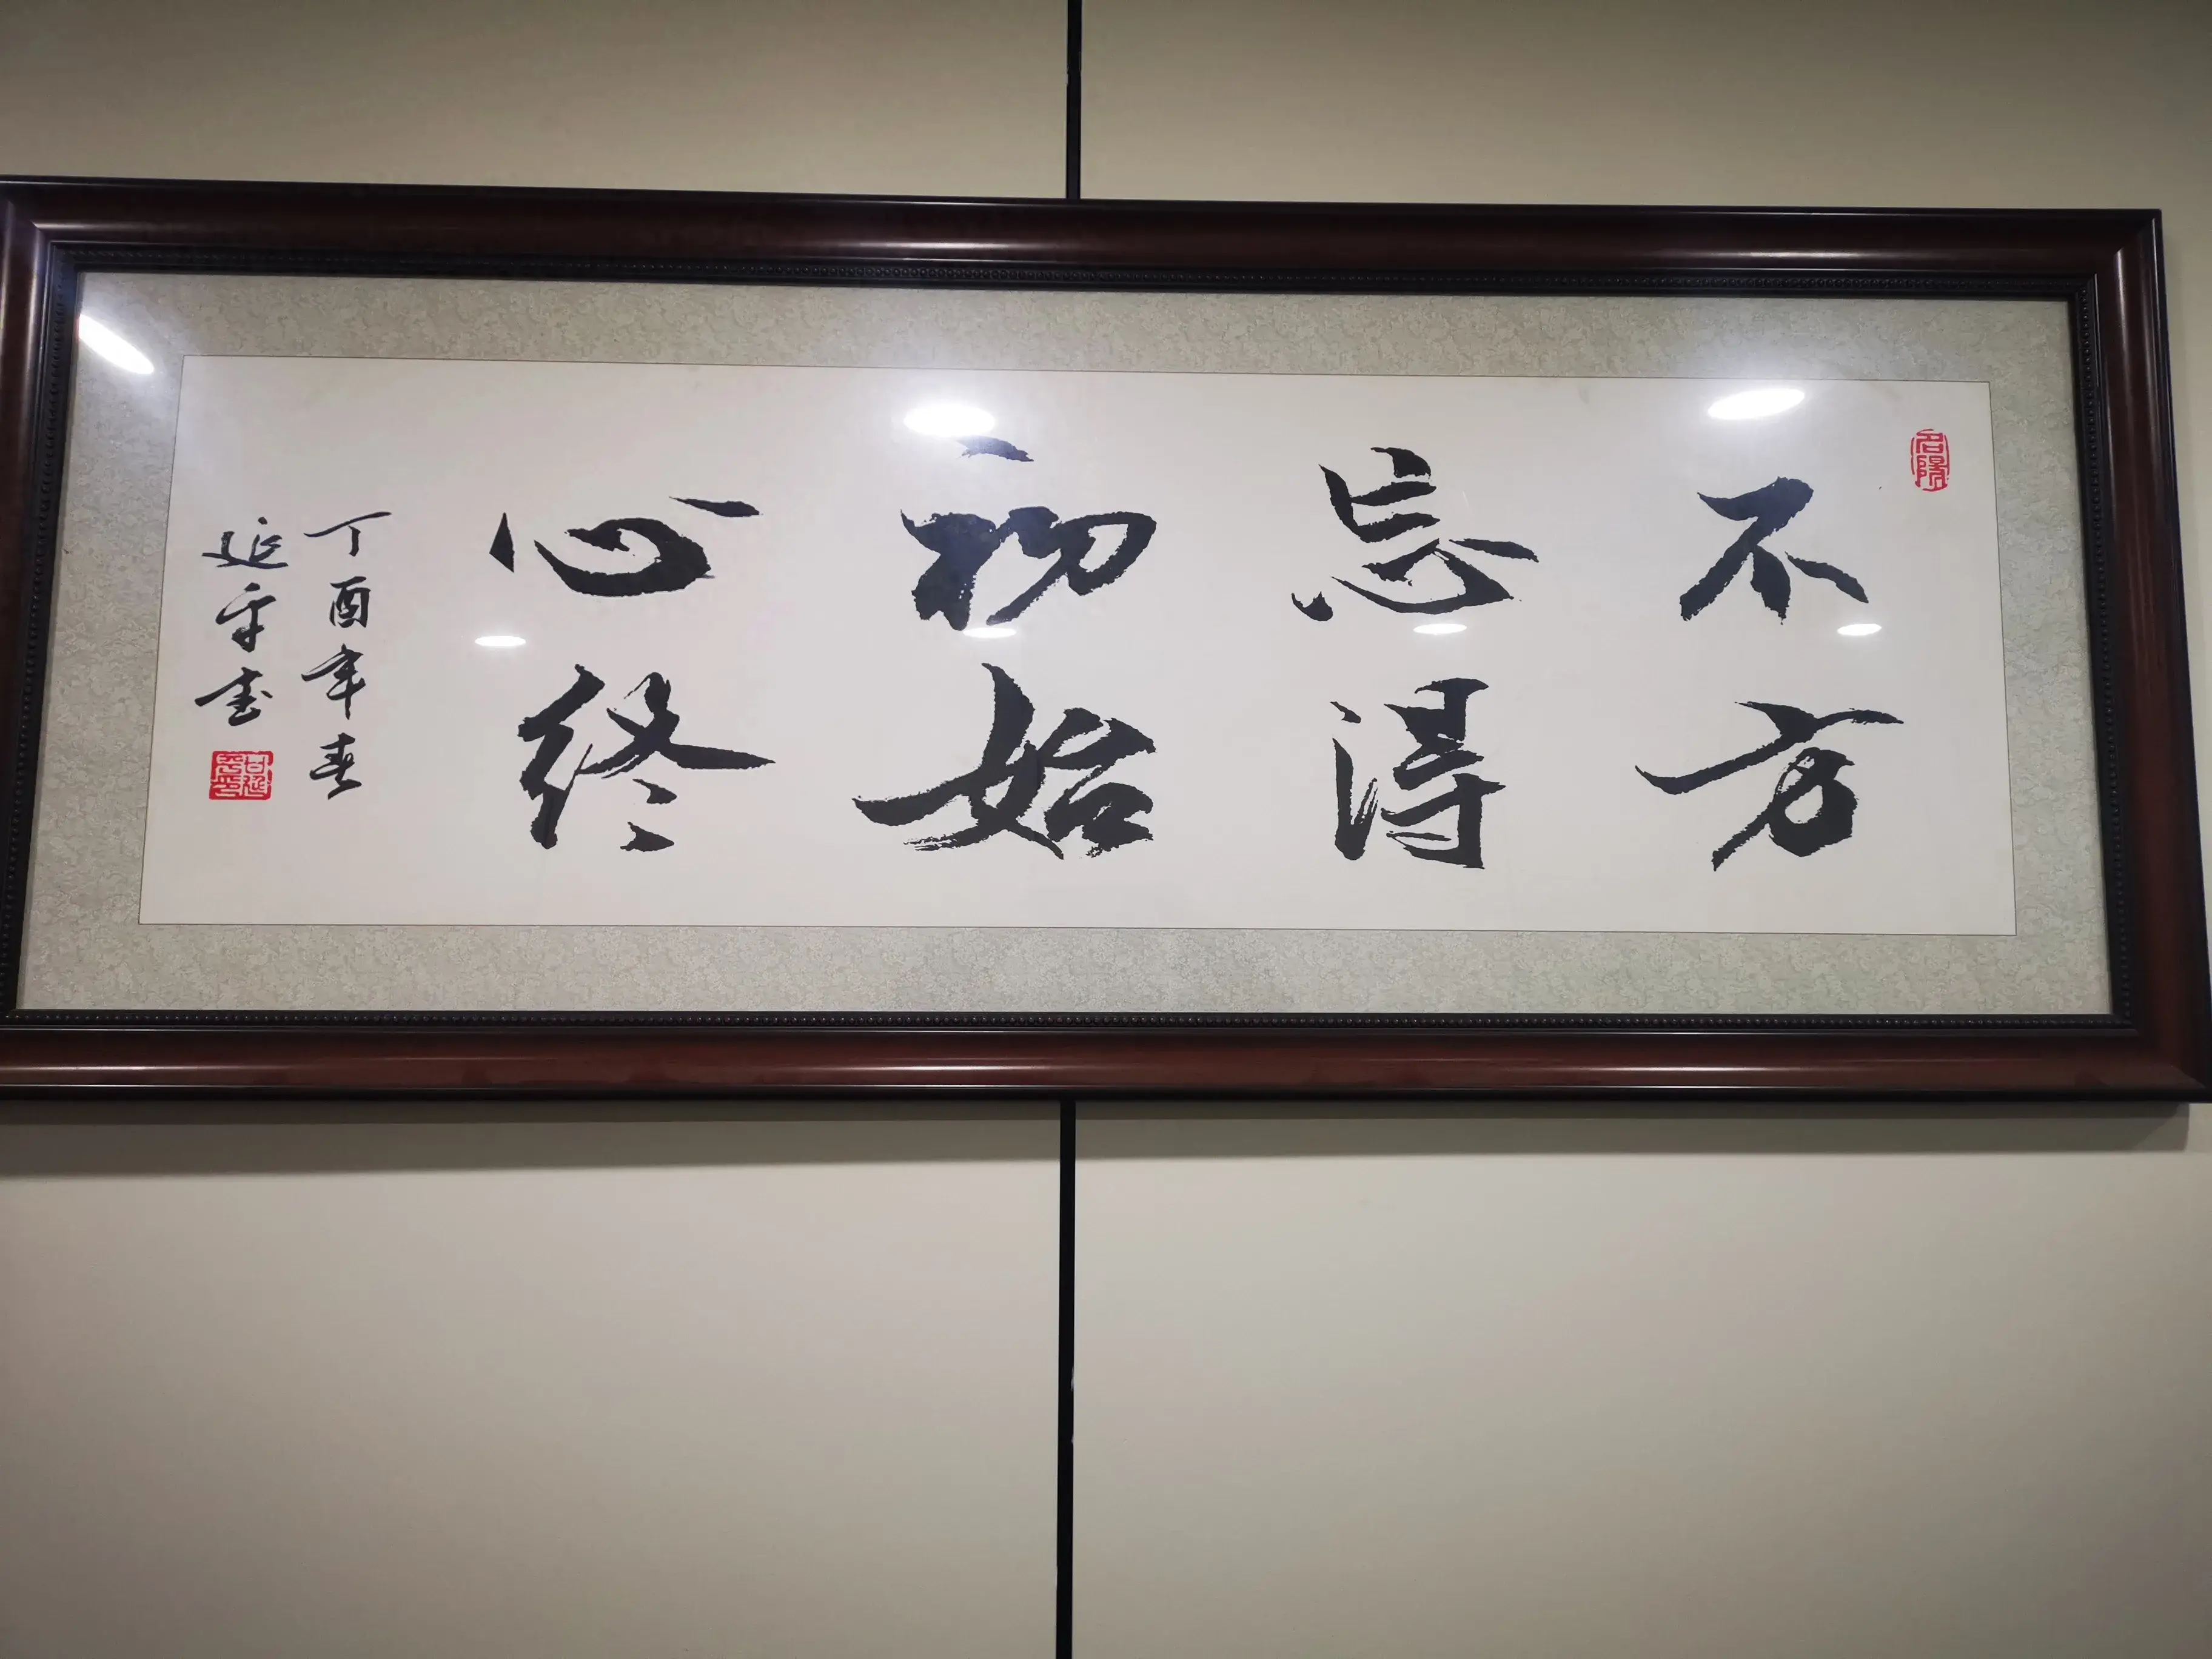 不忘初心
方得始终
丁酉年春
延平書